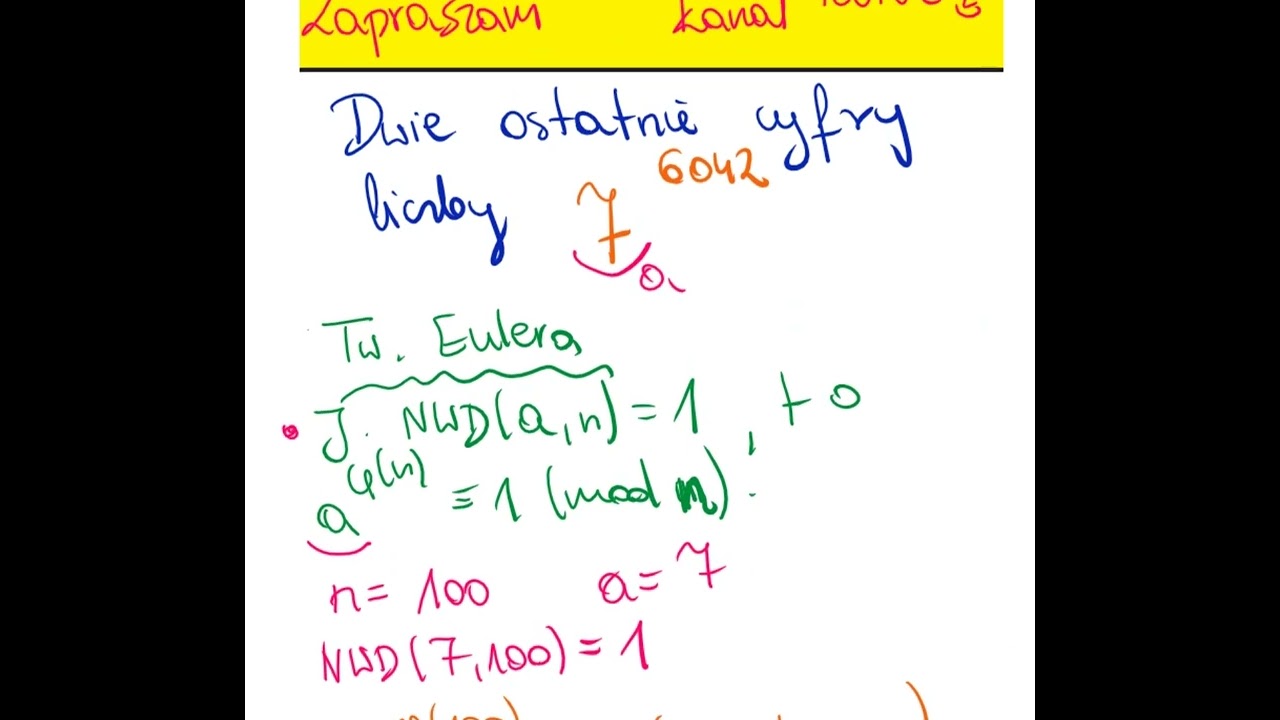 Zapraszam kanał
Dwie ostatnie cyfry
liczby 7^6042
a
Tw. Eulera
J. NWD(a,n) = 1, to
a^φ(n) ≡ 1 (mod n).
n = 100 a = 7
NWD(7,100) = 1